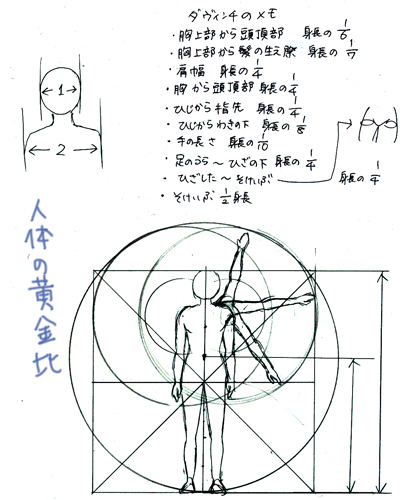 ダヴィンチのメモ
・胸上部から頭頂部 身長の1/6
・胸上部から髪の生え際 身長の1/7
・肩幅 身長の1/4
・胸から頭頂部 身長の1/4
・ひじから指先 身長の1/4
・ひじからわきの下 身長の1/8
・手の長さ 身長の1/10
・足のうら〜ひざの下 身長の1/4
・ひざした〜そけいぶ 身長の1/4
・そけいぶ 1/2身長
1
2
人体の黄金比